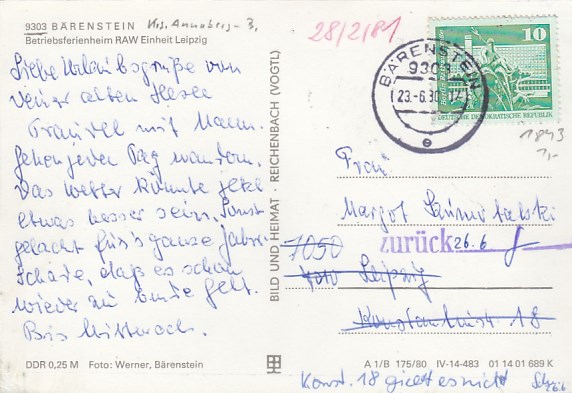 9303 BÄRENSTEIN Krs. Annaberg - 3,
Betriebsferienheim RAW Einheit Leipzig
Liebe Urlaubsgrüße von
Deiner alten
mit Mann.
Gehen jeden Tag wandern.
Das Wetter könnte jetzt
etwas besser sein. Sonst
gelacht für's ganze Jahr.
Schade, daß es schon
wieder zu Ende geht.
Bis Mittwoch.
DDR 0,25 M Foto: Werner, Bärenstein
BILD UND HEIMAT · REICHENBACH (VOGTL)
28/2/81
BÄRENSTEIN
9303
23.-6.80
e
10
DEUTSCHE DEMOKRATISCHE REPUBLIK
1843
1,-
Frau
Margot
zurück 26.6
7050
Leipzig
Konstantinstr. 18
A 1/B 175/80 IV-14-483 01 14 01 689 K
Konst. 18 giebt es nicht
26.6